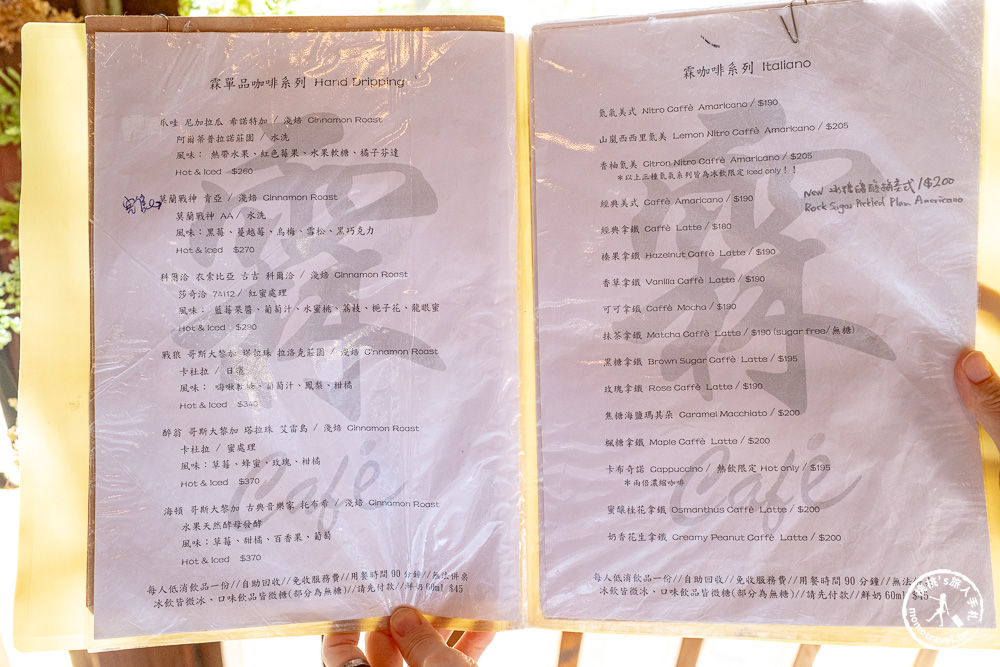 霖單品咖啡系列 Hand Dripping
爪哇 尼加拉瓜 希諾特加 / 淺焙 Cinnamon Roast
阿爾蒂普拉諾莊園 / 水洗
風味： 熱帶水果、紅色莓果、水果軟糖、橘子芬達
Hot & Iced $260
莫蘭戰神 肯亞 / 淺焙 Cinnamon Roast
莫蘭戰神 AA / 水洗
風味：黑莓、蔓越莓、烏梅、雪松、黑巧克力
Hot & Iced $270
科爾洽 衣索比亞 古吉 科爾洽 / 淺焙 Cinnamon Roast
莎奇洽 74112 / 紅蜜處理
風味： 藍莓果醬、葡萄汁、水蜜桃、荔枝、梔子花、龍眼蜜
Hot & Iced $290
戰狼 哥斯大黎加 塔拉珠 拉洛克莊園 / 淺焙 Cinnamon Roast
卡杜拉 / 日曬
風味： 嗨啾軟糖、葡萄汁、鳳梨、柑橘
Hot & Iced $340
醉翁 哥斯大黎加 塔拉珠 艾雷島 / 淺焙 Cinnamon Roast
卡杜拉 / 蜜處理
風味：草莓、蜂蜜、玫瑰、柑橘
Hot & Iced $370
海頓 哥斯大黎加 古典音樂家 托布希 / 淺焙 Cinnamon Roast
水果天然酵母發酵
風味：草莓、甜橘、百香果、葡萄
Hot & Iced $370
每人低消飲品一份//自助回收//免收服務費//用餐時間 90 分鐘//無法併桌
冰飲皆微冰、口味飲品皆微糖(部分為無糖)//請先付款//鮮奶 60ml $45
霖 Café
霖咖啡系列 Italiano
氮氣美式 Nitro Caffè Amaricano / $190
山嵐西西里氮美 Lemon Nitro Caffè Amaricano / $205
香柚氮美 Citron Nitro Caffè Amaricano / $205
＊以上三種氮氣系列皆為冰飲限定 Iced only！！
經典美式 Caffè Amaricano / $190
New 冰糖釀脆梅美式/$200
Rock Sugar Pickled Plum Americano
經典拿鐵 Caffè Latte / $180
榛果拿鐵 Hazelnut Caffè Latte / $190
香草拿鐵 Vanilla Caffè Latte / $190
可可拿鐵 Caffè Mocha / $190
抹茶拿鐵 Matcha Caffè Latte / $190 (sugar free/無糖)
黑糖拿鐵 Brown Sugar Caffè Latte / $195
玫瑰拿鐵 Rose Caffè Latte / $190
焦糖海鹽瑪其朵 Caramel Macchiato / $200
楓糖拿鐵 Maple Caffè Latte / $200
卡布奇諾 Cappuccino / 熱飲限定 Hot only / $195
＊兩倍濃縮咖啡
蜜釀桂花拿鐵 Osmanthus Caffè Latte / $200
奶香花生拿鐵 Creamy Peanut Caffè Latte / $200
每人低消飲品一份//自助回收//免收服務費//用餐時間 90 分鐘//無法
冰飲皆微冰、口味飲品皆微糖(部分為無糖)//請先付款//鮮奶 60ml $45
霖 Café